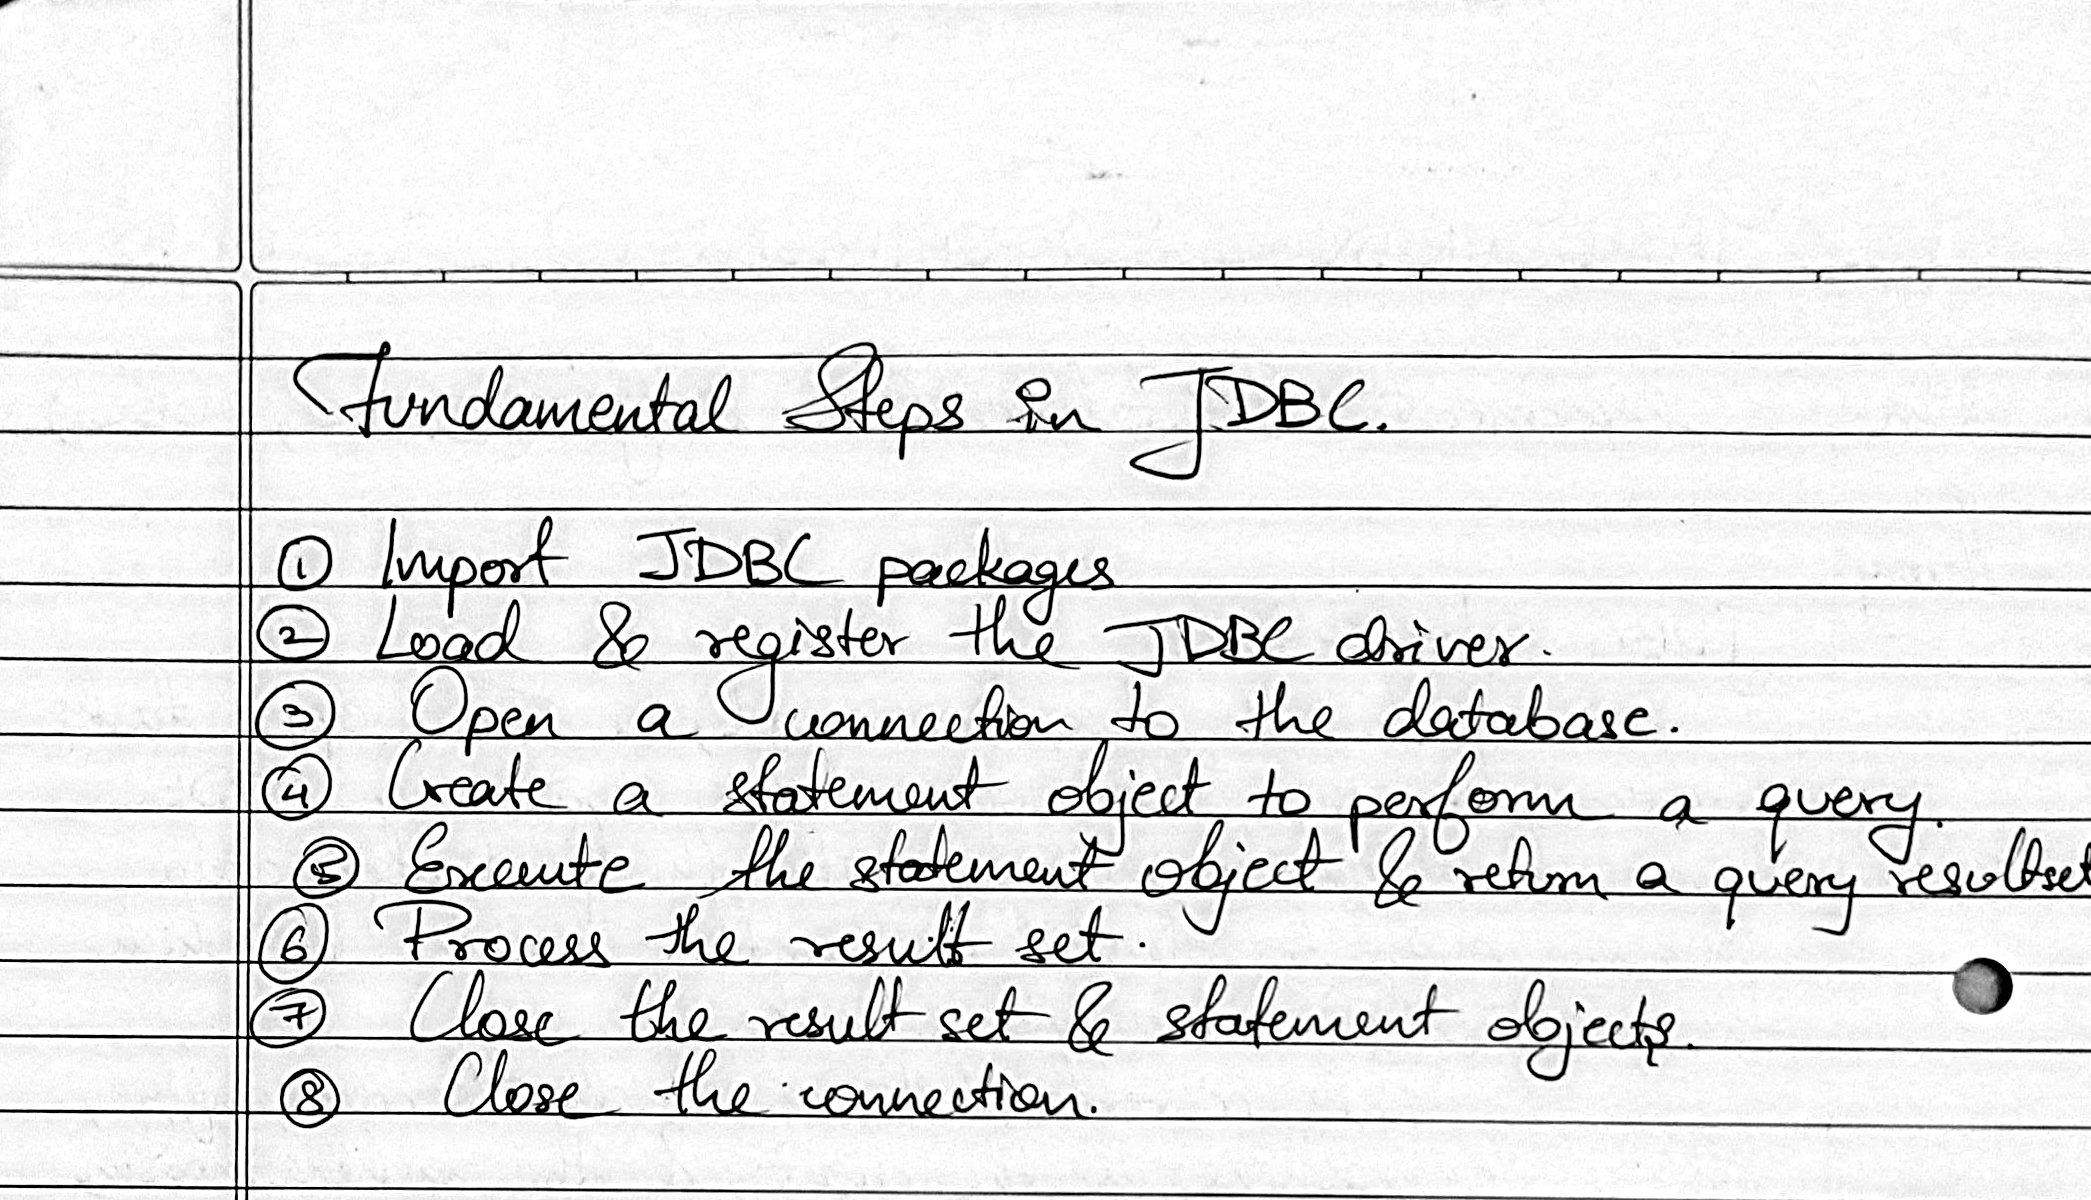 Fundamental Steps in JDBC.
① Import JDBC packages
② Load & register the JDBC driver.
③ Open a connection to the database.
④ Create a statement object to perform a query.
⑤ Execute the statement object & return a query resultset
⑥ Process the result set.
⑦ Close the result set & statement objects.
⑧ Close the connection.